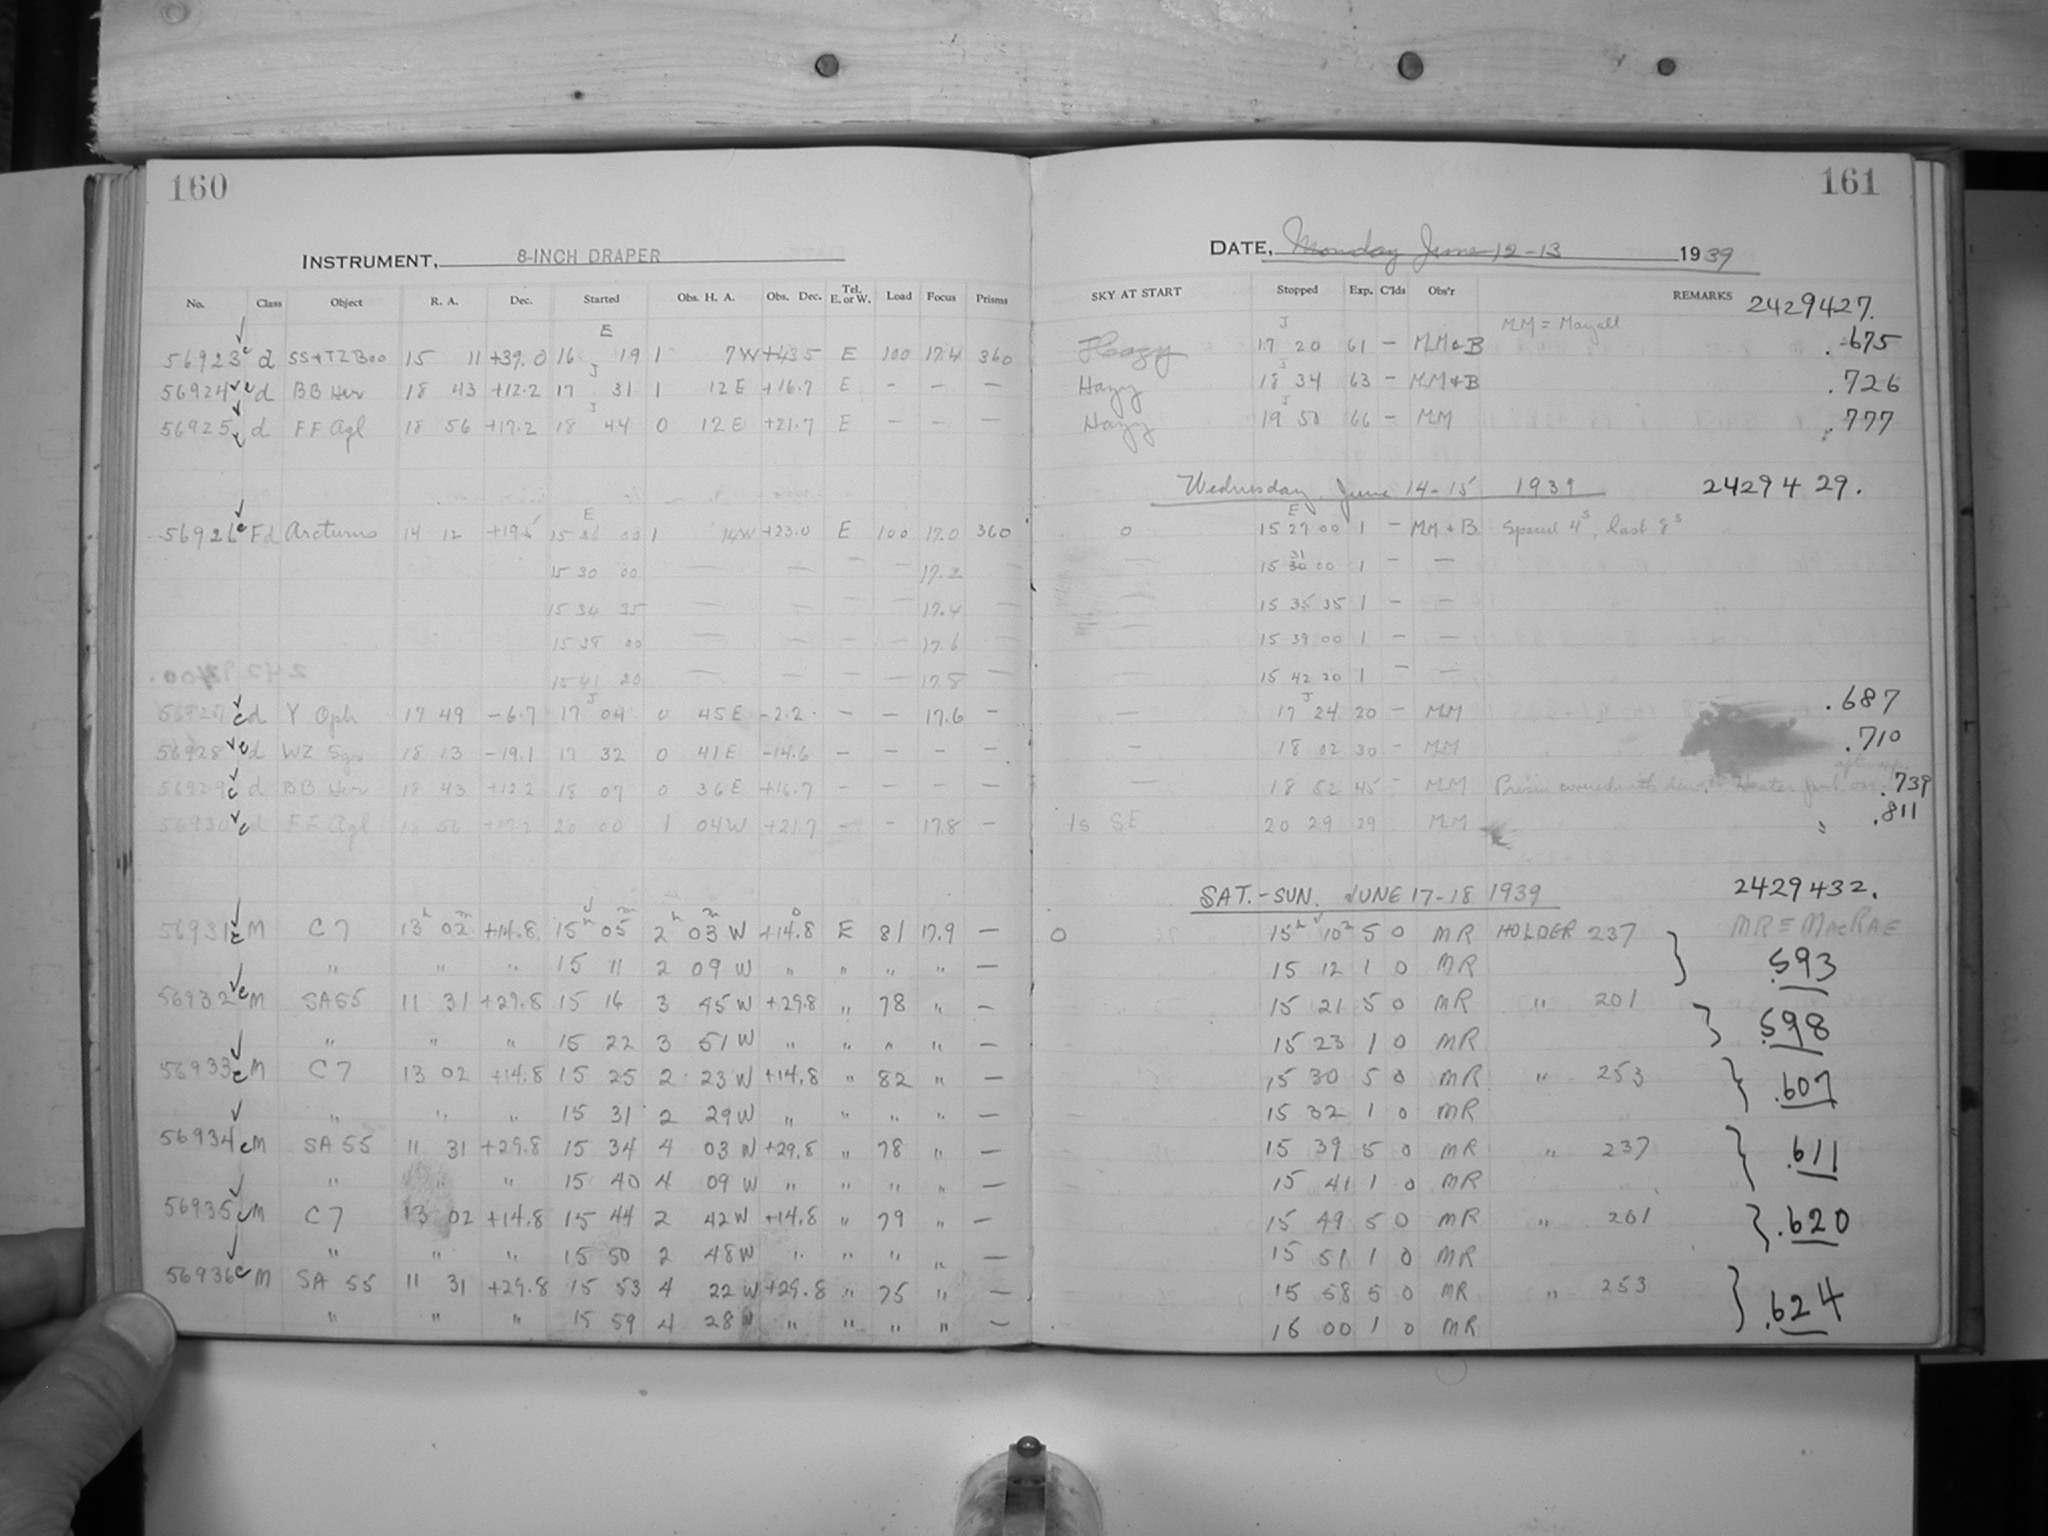 160
INSTRUMENT, 8-INCH DRAPER
No. Class Object R. A. Dec. Started Obs. H. A. Obs. Dec. Tel. E. or W. Load Focus Prisms
E
56923 c d SS+TZ Boo 15 11 +39.0 16 19 1 7W +43.5 E 100 17.4 360
J
56924 c d BB Her 18 43 +12.2 17 31 1 12 E +16.7 E — — —
J
56925 c d FF Aql 18 56 +17.2 18 44 0 12 E +21.7 E — — —
E
56926 c Fd Arcturus 14 12 +19.5 15 26 00 1 14W +23.0 E 100 17.0 360
15 30 00 — — — — 17.2 —
15 34 35 — — — — 17.4 —
15 38 00 — — — — 17.6 —
15 41 20 — — — — 17.8 —
J
56927 c d Y Oph 17 49 -6.7 17 04 0 45 E -2.2 — — 17.6 —
56928 c d WZ Sgr 18 13 -19.1 17 32 0 41 E -14.6 — — — —
56929 c d BB Her 18 43 +12.2 18 07 0 36 E +16.7 — — — —
56930 c d FF Aql 18 56 +17.2 20 00 1 04W +21.7 — — 17.8 —
J
56931 c M C7 13h 02m +14.8 15h 05m 2h 03m W +14.8° E 81 17.9 —
" " " 15 11 2 09 W " " " " —
56932 c M SA55 11 31 +29.8 15 16 3 45 W +29.8 " 78 " —
" " " 15 22 3 51 W " " " " —
56933 c M C7 13 02 +14.8 15 25 2 23 W +14.8 " 82 " —
" " " 15 31 2 29 W " " " " —
56934 c M SA 55 11 31 +29.8 15 34 4 03 W +29.8 " 78 " —
" " " 15 40 4 09 W " " " " —
56935 c M C7 13 02 +14.8 15 44 2 42 W +14.8 " 79 " —
" " " 15 50 2 48 W " " " " —
56936 c M SA 55 11 31 +29.8 15 53 4 22 W +29.8 " 75 " —
" " " 15 59 4 28 W " " " " —
161
DATE, Monday June 12-13 1939
SKY AT START Stopped Exp. C'lds Obs'r REMARKS 2429427.
J MM = Mayall
Hazy 17 20 61 — MM+B .675
J
Hazy 18 34 63 — MM+B .726
J
Hazy 19 50 66 — MM .777
Wednesday, June 14-15 1939 2429429.
E
0 15 27 00 1 — MM+B 4s, last 8s
31
— 15 30 00 1 — —
— 15 35 35 1 — —
— 15 39 00 1 — —
— 15 42 20 1 — —
J .687
— 17 24 20 — MM
— 18 02 30 — MM .710
— 18 52 45 — MM Prism covered with dew. Heater put on .739
1s SE 20 29 29 MM .811
SAT.-SUN. JUNE 17-18 1939 2429432.
J MR = MACRAE
0 15h 10m 5 0 MR HOLDER 237
15 12 1 0 MR .593
15 21 5 0 MR " 201
15 23 1 0 MR .598
15 30 5 0 MR " 253 .607
15 32 1 0 MR
15 39 5 0 MR " 237 .611
15 41 1 0 MR
15 49 5 0 MR " 201 .620
15 51 1 0 MR
15 58 5 0 MR " 253 .624
16 00 1 0 MR